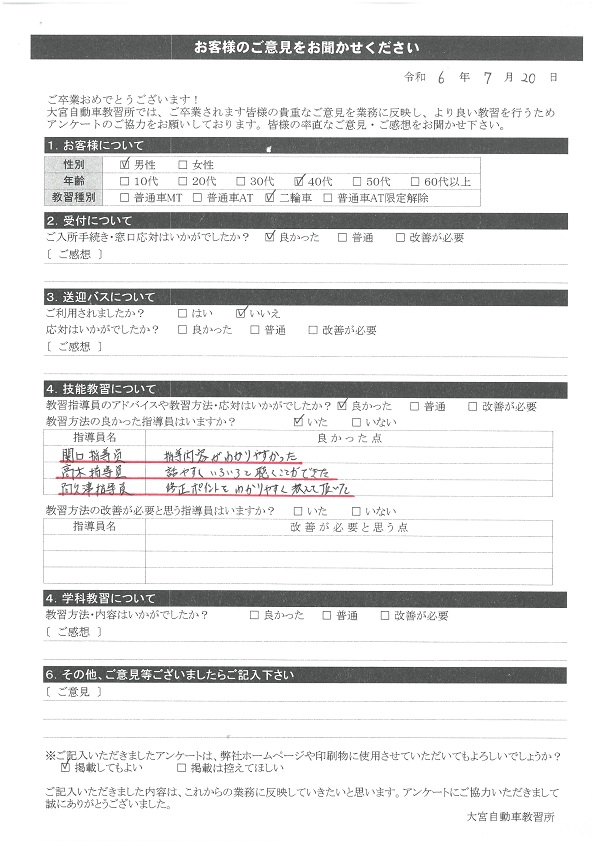 お客様のご意見をお聞かせください
令和 6 年 7 月 20 日
ご卒業おめでとうございます！
大宮自動車教習所では、ご卒業されます皆様の貴重なご意見を業務に反映し、より良い教習を行うため
アンケートのご協力をお願いしております。皆様の率直なご意見・ご感想をお聞かせ下さい。
1. お客様について
性別 ☑男性 □女性
年齢 □10代 □20代 □30代 ☑40代 □50代 □60代以上
教習種別 □普通車MT □普通車AT ☑二輪車 □普通車AT限定解除
2. 受付について
ご入所手続き・窓口応対はいかがでしたか？ ☑良かった □普通 □改善が必要
〔 ご感想 〕
3. 送迎バスについて
ご利用されましたか？ □はい ☑いいえ
応対はいかがでしたか？ □良かった □普通 □改善が必要
〔 ご感想 〕
4. 技能教習について
教習指導員のアドバイスや教習方法・応対はいかがでしたか？ ☑良かった □普通 □改善が必要
教習方法の良かった指導員はいますか？ ☑いた □いない
指導員名 良かった点
関口指導員 指導内容がわかりやすかった
高木指導員 話やすくいろいろと聴くことができた
阿久津指導員 修正ポイントをわかりやすく教えて頂いた
教習方法の改善が必要と思う指導員はいますか？ □いた □いない
指導員名 改善が必要と思う点
4. 学科教習について
教習方法・内容はいかがでしたか？ □良かった □普通 □改善が必要
〔 ご感想 〕
6. その他、ご意見等ございましたらご記入下さい
〔 ご意見 〕
※ご記入いただきましたアンケートは、弊社ホームページや印刷物に使用させていただいてもよろしいでしょうか？
☑掲載してもよい □掲載は控えてほしい
ご記入いただきました内容は、これからの業務に反映していきたいと思います。アンケートにご協力いただきまして
誠にありがとうございました。
大宮自動車教習所